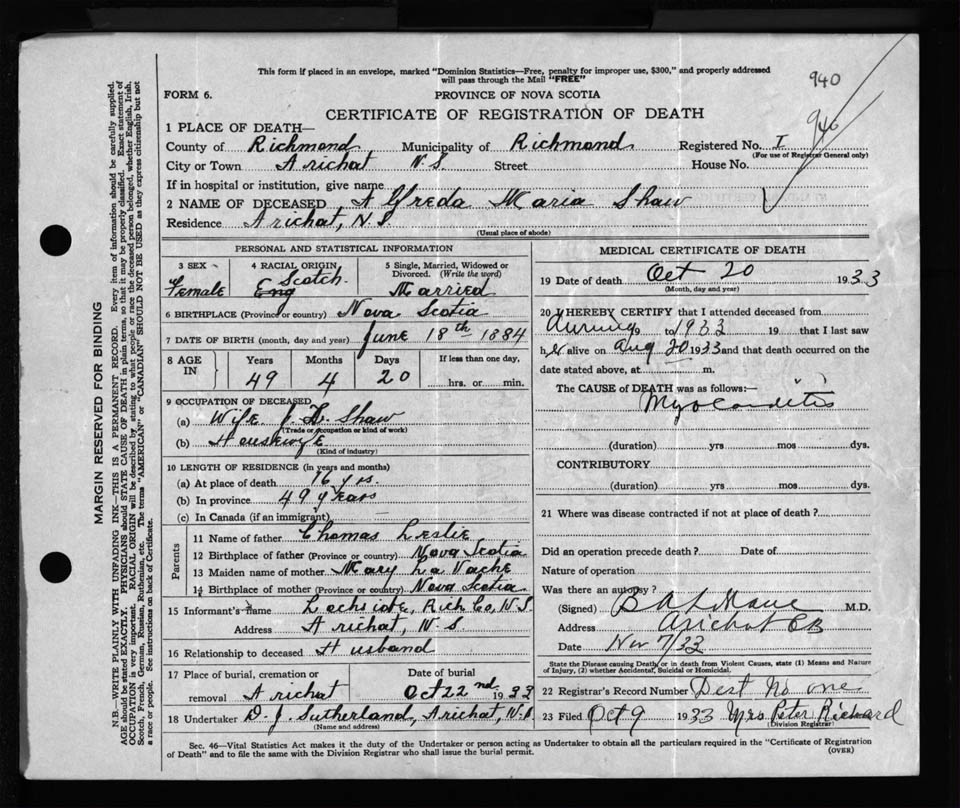 940
This form if placed in an envelope, marked "Dominion Statistics—Free, penalty for improper use, $300," and properly addressed
will pass through the Mail "FREE"
FORM 6. PROVINCE OF NOVA SCOTIA
CERTIFICATE OF REGISTRATION OF DEATH
946
1 PLACE OF DEATH—
County of Richmond Municipality of Richmond Registered No. I
(For use of Registrar General only)
City or Town Arichat N.S. Street House No.
If in hospital or institution, give name
2 NAME OF DECEASED Alfreda Maria Shaw
Residence Arichat, N.S.
(Usual place of abode)
PERSONAL AND STATISTICAL INFORMATION
3 SEX 4 RACIAL ORIGIN 5 Single, Married, Widowed or
Divorced. (Write the word)
Female Eng Scotch Married
6 BIRTHPLACE (Province or country) Nova Scotia
7 DATE OF BIRTH (month, day and year) June 18th 1884
8 AGE IN Years Months Days If less than one day,
49 4 20 hrs. or min.
9 OCCUPATION OF DECEASED
(a) Wife J. Shaw
(Trade or occupation or kind of work)
(b) Houskwife
(Kind of industry)
10 LENGTH OF RESIDENCE (in years and months)
(a) At place of death 16 yrs.
(b) In province 49 years
(c) In Canada (if an immigrant)
Parents
11 Name of father Thomas Leslie
12 Birthplace of father (Province or country) Nova Scotia
13 Maiden name of mother Mary La Vache
14 Birthplace of mother (Province or country) Nova Scotia
15 Informant's name Rich Co, N.S.
Address Arichat, N.S.
16 Relationship to deceased Husband
17 Place of burial, cremation or Date of burial
removal Arichat Oct 22nd 1933
18 Undertaker D. J. Sutherland, Arichat, N.S.
(Name and address)
MEDICAL CERTIFICATE OF DEATH
19 Date of death Oct 20 1933
(Month, day and year)
20 I HEREBY CERTIFY that I attended deceased from
During to 1933 19 that I last saw
her alive on Aug 20 1933 and that death occurred on the
date stated above, at m.
The CAUSE of DEATH was as follows:—
Myocarditis
(duration) yrs mos dys.
CONTRIBUTORY
(duration) yrs mos dys.
21 Where was disease contracted if not at place of death?
Did an operation precede death? Date of
Nature of operation
Was there an autopsy?
(Signed) M.D.
Address Arichat CB
Date Nov 7/33
State the Disease causing Death, or in death from Violent Causes, state (1) Means and Nature
of Injury, (2) whether Accidental, Suicidal or Homicidal.
22 Registrar's Record Number Dist No one
23 Filed Oct 9 1933 Mrs Peter Richard
(Division Registrar)
Sec. 46—Vital Statistics Act makes it the duty of the Undertaker or person acting as Undertaker to obtain all the particulars required in the "Certificate of Registration
of Death" and to file the same with the Division Registrar who shall issue the burial permit. (OVER)
MARGIN RESERVED FOR BINDING
N.B.—WRITE PLAINLY WITH UNFADING INK—THIS IS A PERMANENT RECORD. Every item of information should be carefully supplied.
AGE should be stated EXACTLY. PHYSICIANS should STATE CAUSE OF DEATH in plain terms, so that it may be properly classified. Exact statement of
OCCUPATION is very important. RACIAL ORIGIN will be described by stating to what people or race the deceased person belonged, whether English, Irish,
Scotch, French, German, Russian, Ruthenian, etc. The terms "AMERICAN" or "CANADIAN" SHOULD NOT BE USED as they express citizenship but not
a race or people. See instructions on back of Certificate.